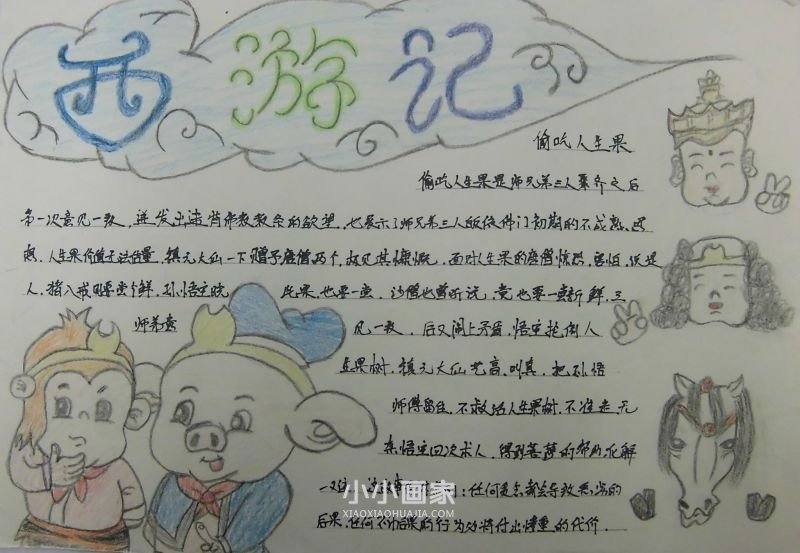 西游记
偷吃人生果
偷吃人生果是师兄弟三人聚齐之后
第一次意见一致，迸发出违背师教教条的欲望，也展示了师兄弟三人皈依佛门初期的不成熟
想，人生果价值无法估量，镇元大仙一下赠予唐僧两个，故见其慷慨，面对人生果的唐僧惊恐，害怕，误是
人，猪八戒要尝个鲜，孙悟空晓 此果，也要一尝，沙僧也曾听说，竟也要一尝新鲜，三
师弟意 见一致，后又闹上矛盾，悟空推倒人
生果树，镇元大仙艺高，叫真，把孙悟
师傅留住，不救活人生果树，不准走，无
奈悟空四次求人，得到菩萨的帮助化解
：任何 都会导致 的
后果，任何不计后果的行为必将付出惨重的代价．
小小画家
XIAOXIAOHUAJIA.COM